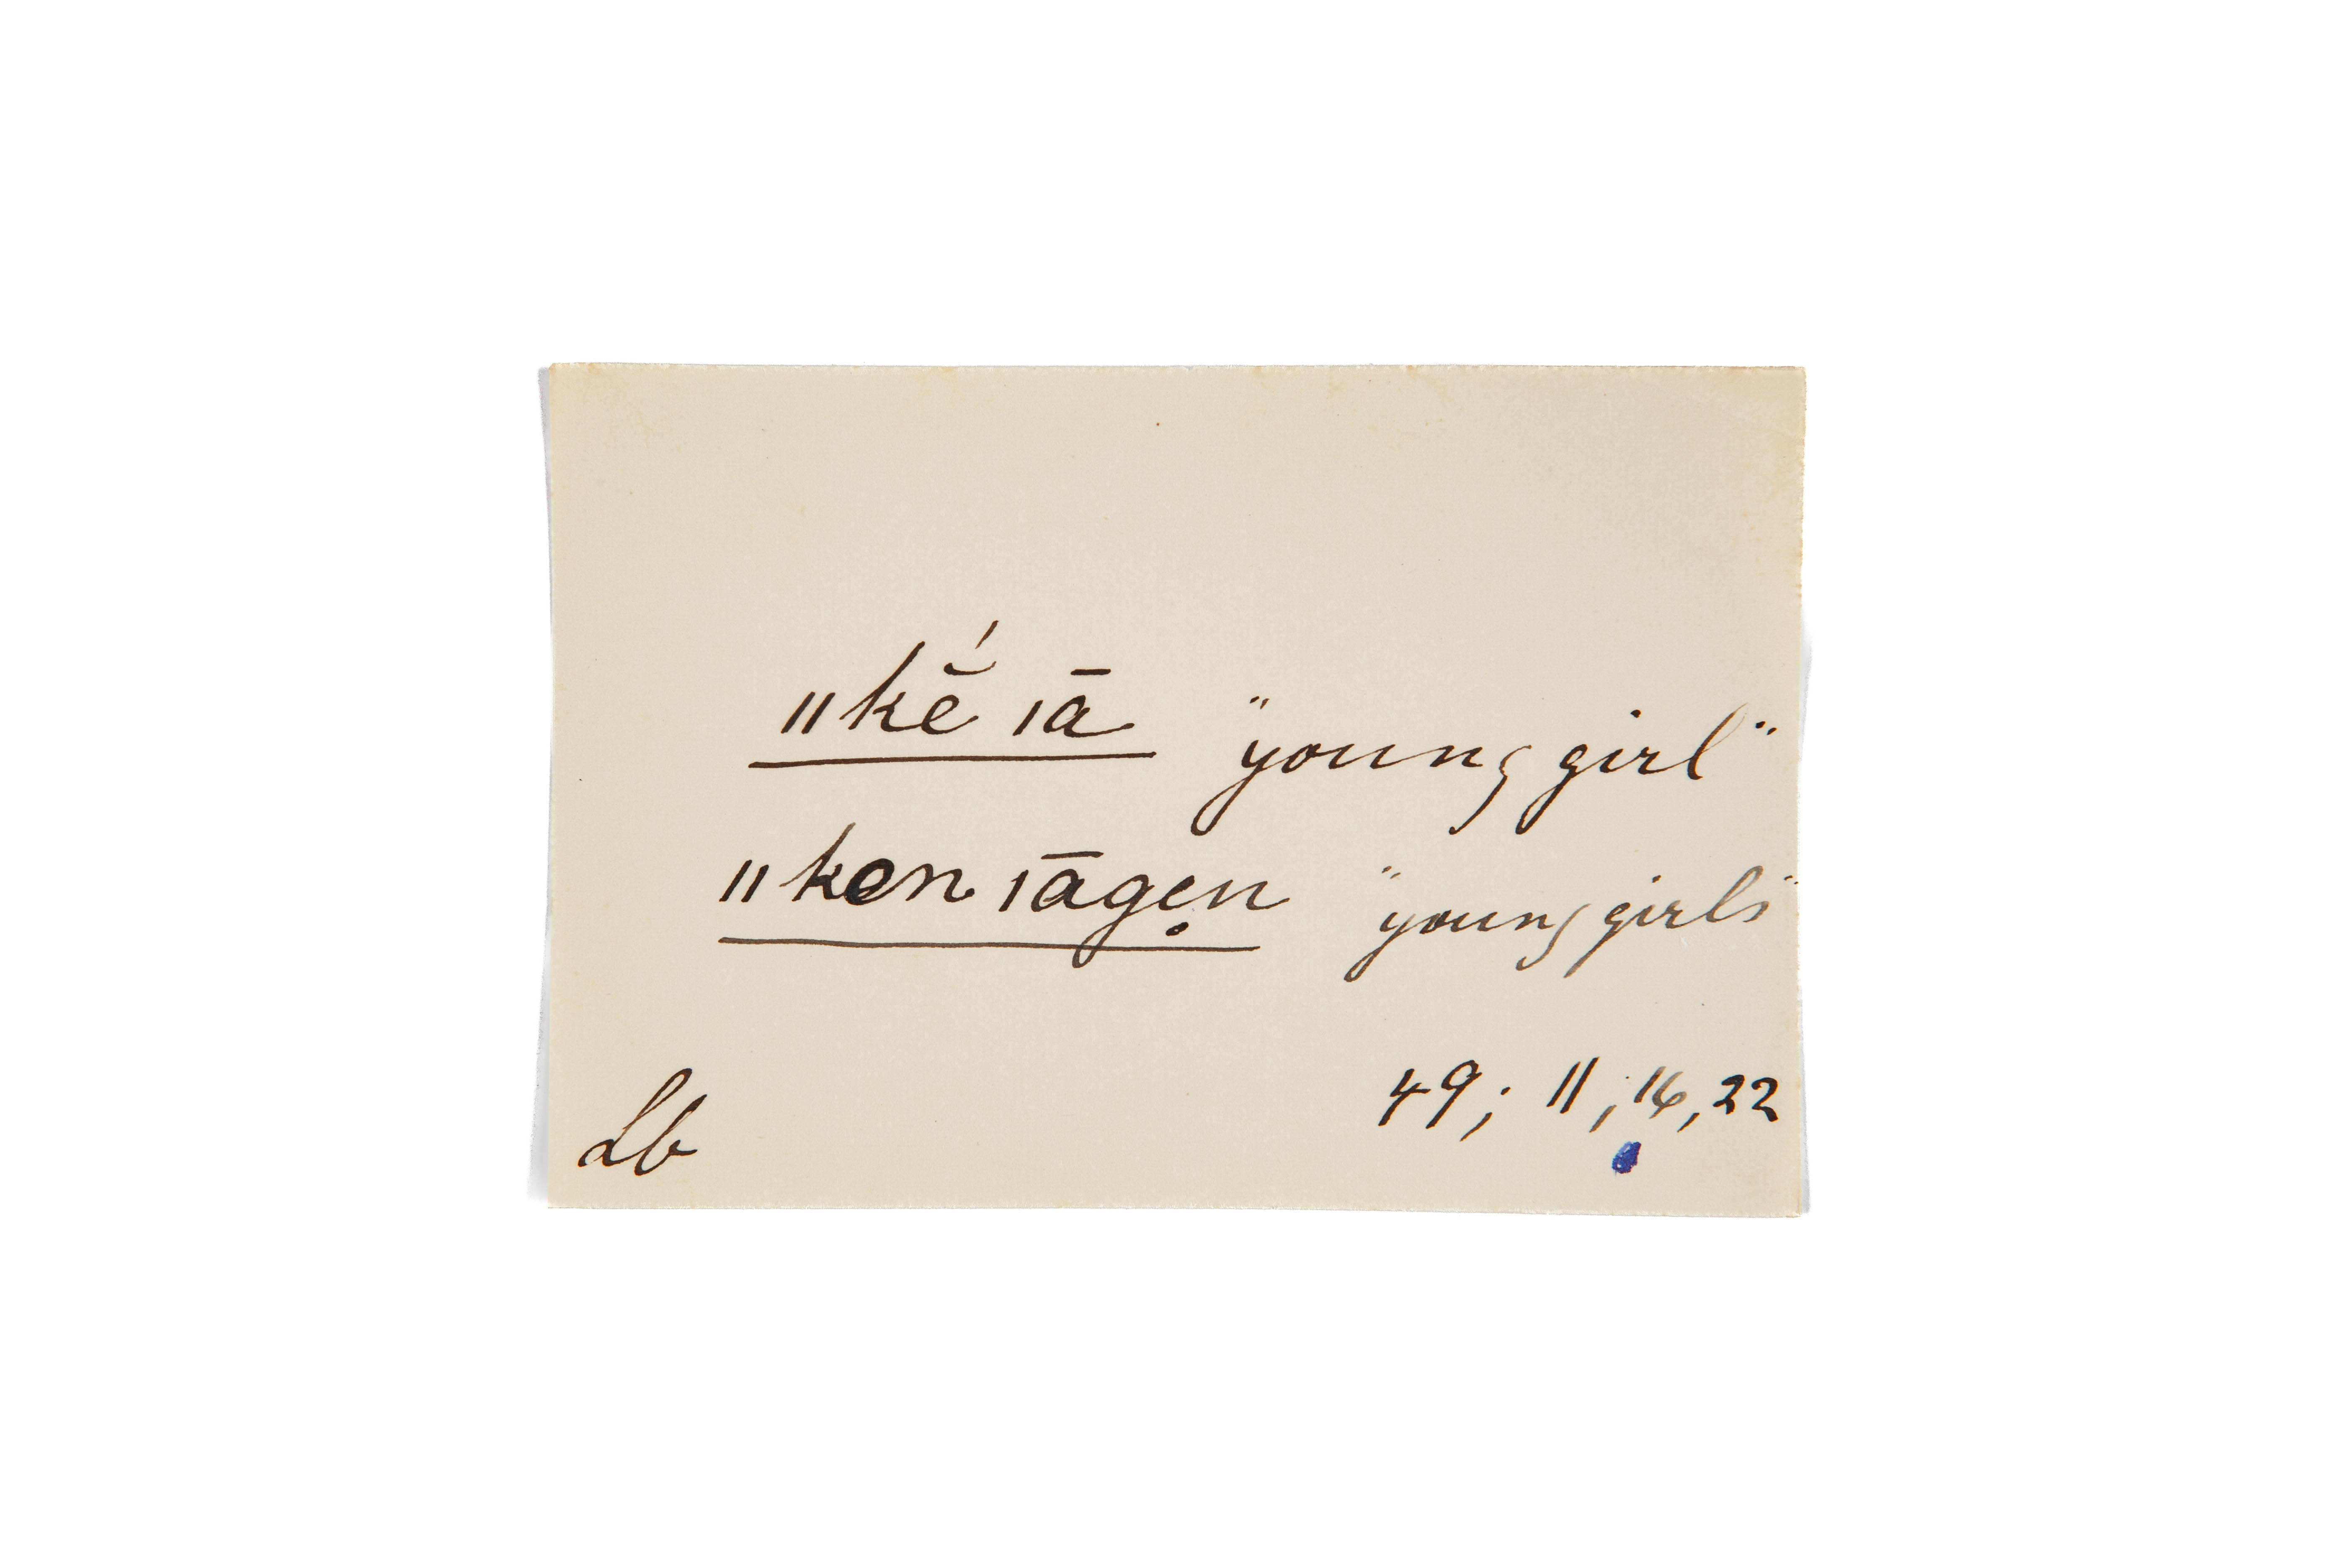 ǁkĕ́ ǀā "young girl"
ǁken ǀāgẹn "young girls"
Lb 49; 11, 16, 22